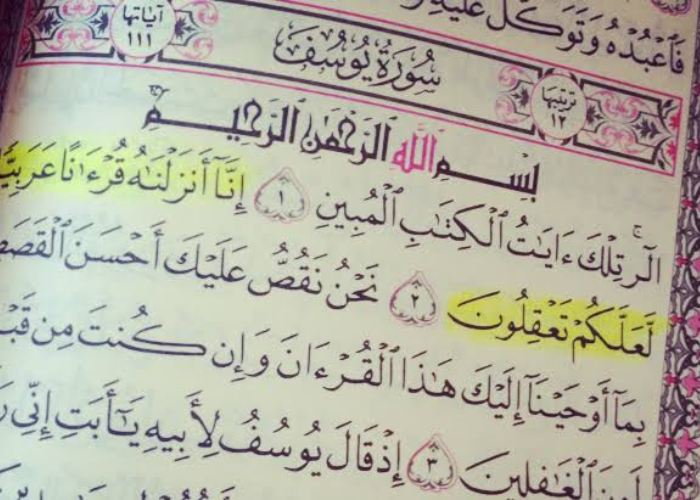 فَٱعْبُدْهُ وَتَوَكَّلْ عَلَيْهِ
ءَايَاتُهَا ١١١
سُورَةُ يُوسُفَ
تَرْتِيبُهَا ١٢
بِسْمِ ٱللَّهِ ٱلرَّحْمَٰنِ ٱلرَّحِيمِ
الٓر تِلْكَ ءَايَٰتُ ٱلْكِتَٰبِ ٱلْمُبِينِ ١ إِنَّآ أَنزَلْنَٰهُ قُرْءَٰنًا عَرَبِيًّا
لَّعَلَّكُمْ تَعْقِلُونَ ٢ نَحْنُ نَقُصُّ عَلَيْكَ أَحْسَنَ ٱلْقَصَصِ
بِمَآ أَوْحَيْنَآ إِلَيْكَ هَٰذَا ٱلْقُرْءَانَ وَإِن كُنتَ مِن
ٱلْغَٰفِلِينَ ٣ إِذْ قَالَ يُوسُفُ لِأَبِيهِ يَٰٓأَبَتِ إِنِّى